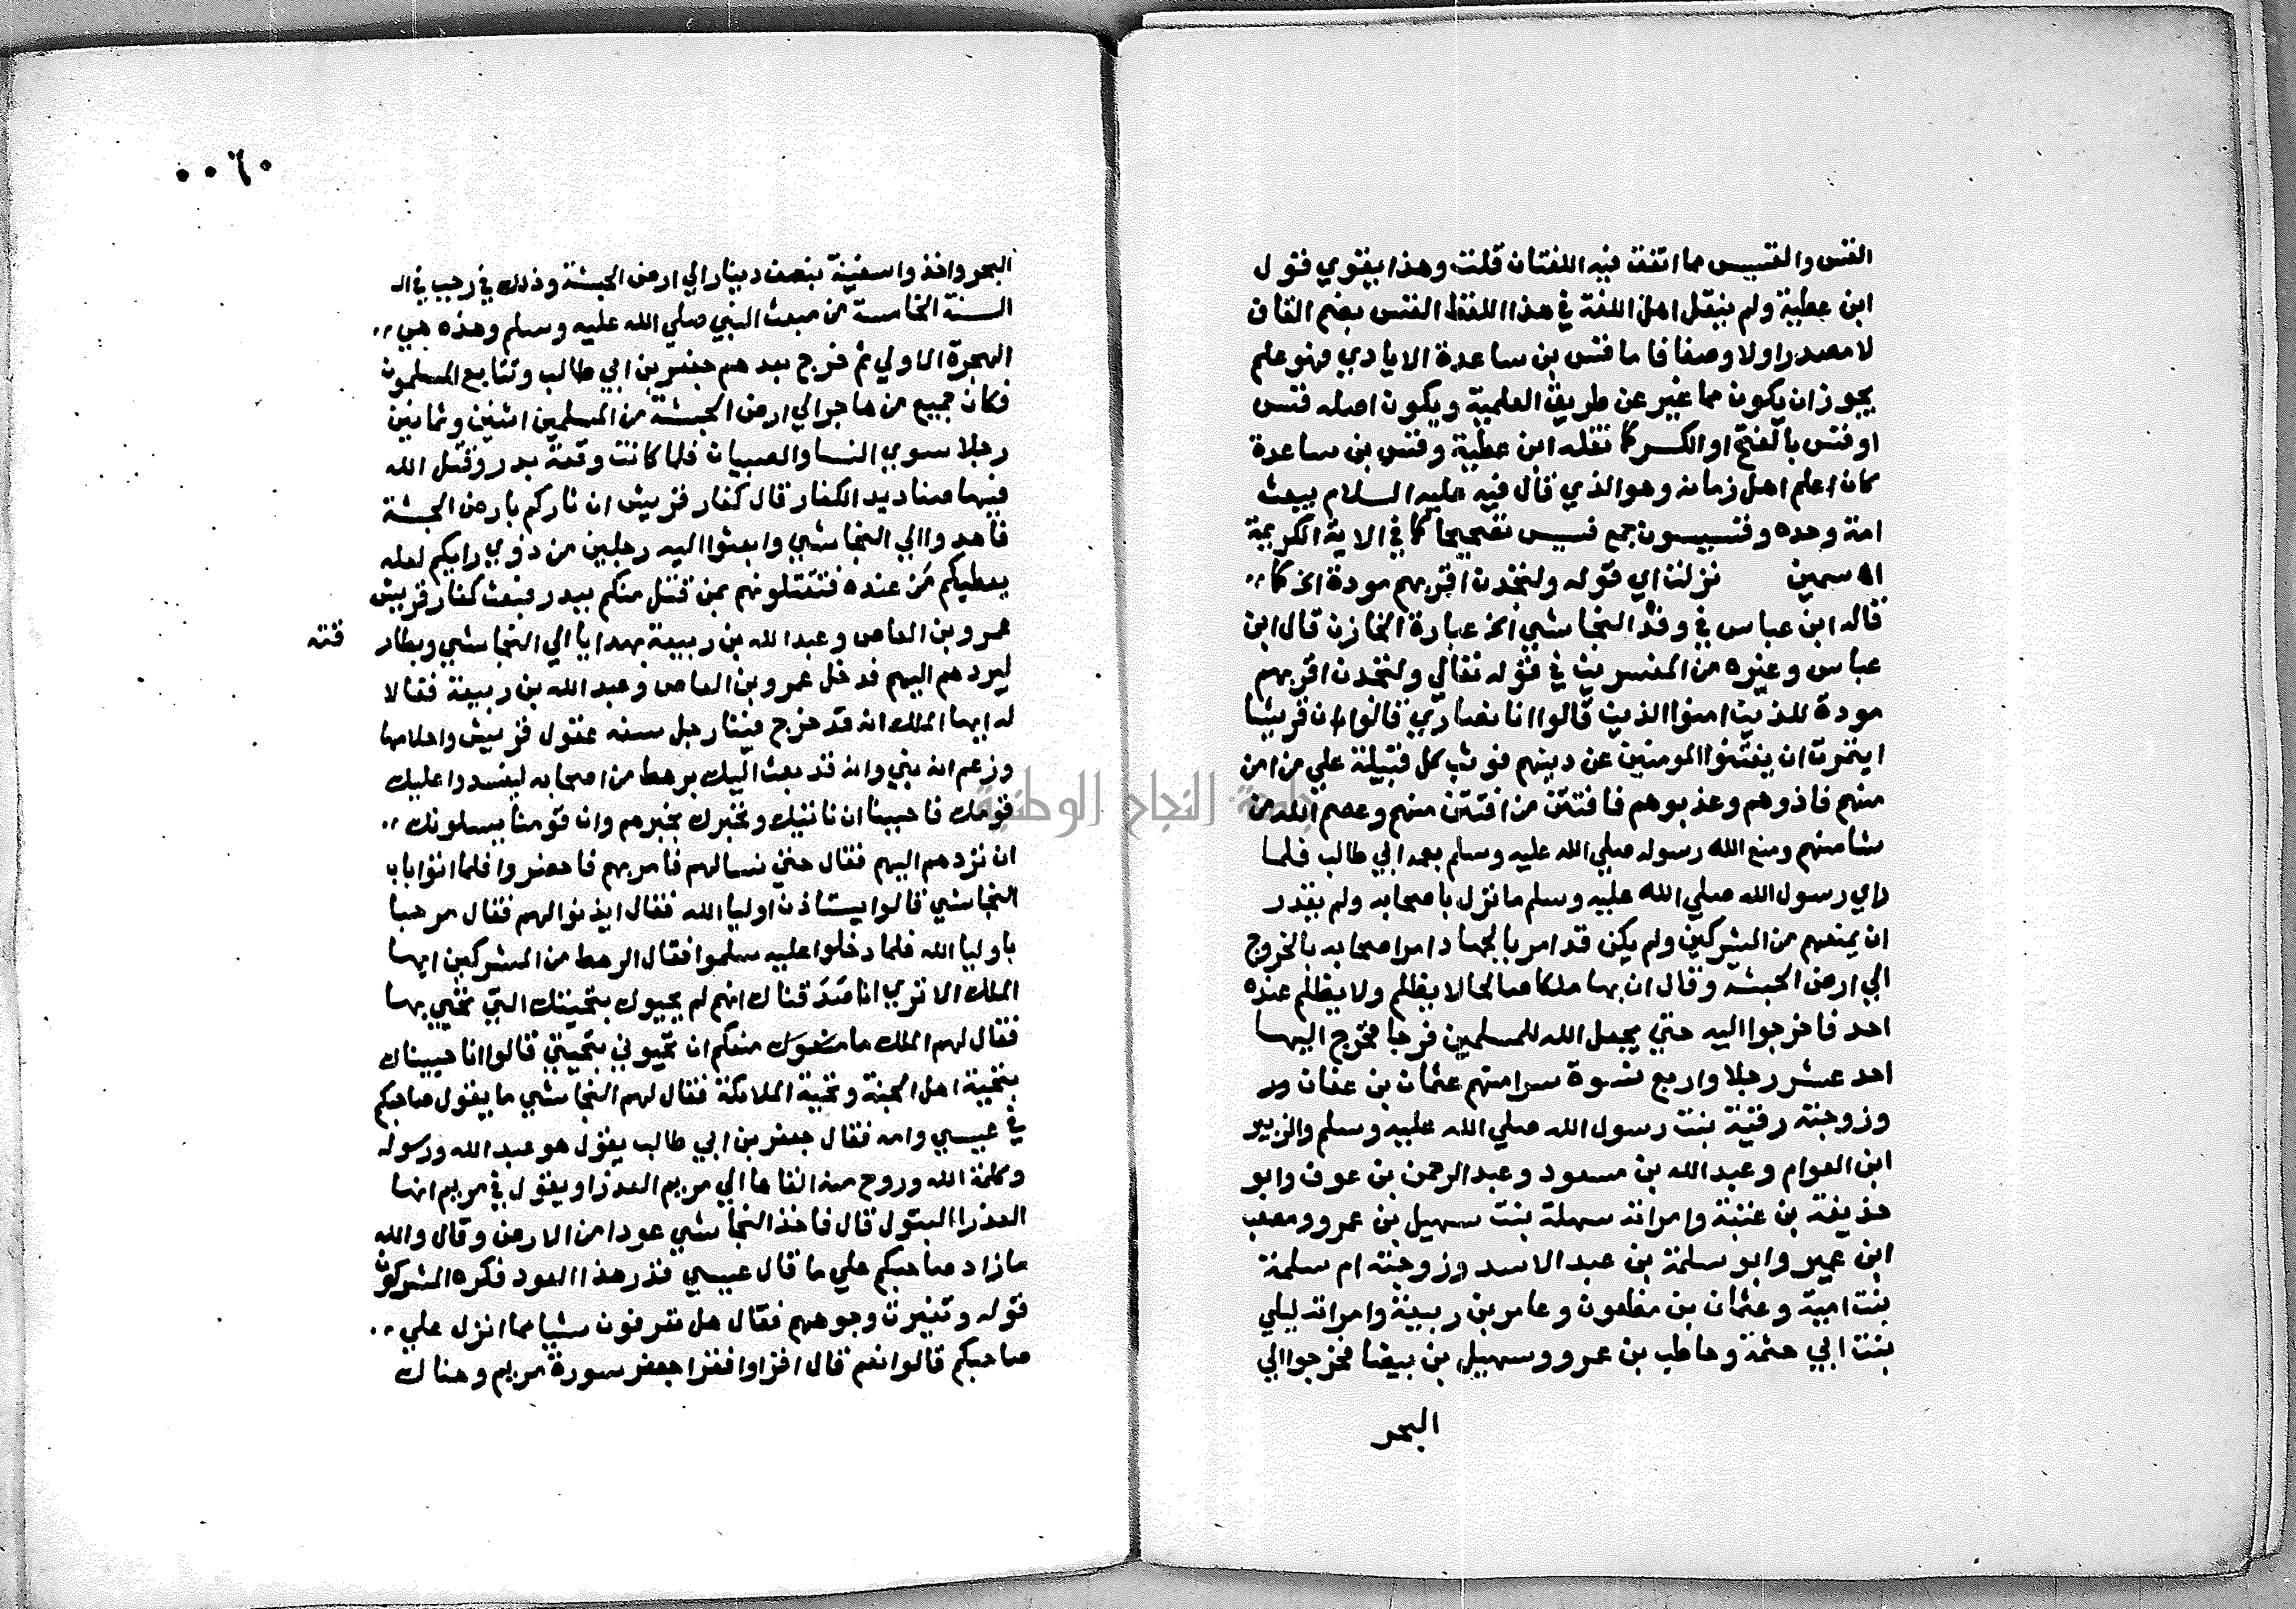 القس والقسيس مما اتفق فيه اللغتان قلت وهذا يقوي قول
ابن عطية ولم ينقل اهل اللغة في هذا اللفظ القس بضم القاف
لا مصدرا ولا وصفا فاما قس بن ساعدة الايادي فهو علم
يجوز ان يكون مما غير عن طريق العلمية ويكون اصله قس
او قس بالفتح او الكسر كما نقله ابن عطية وقس بن ساعدة
كان اعلم اهل زمانه وهو الذي قال فيه عليه السلام يبعث
امة وحده وقسيسون جمع قسيس تصحيحا كما في الاية الكريمة
اه سمين نزلت اي قوله ولتجدن اقربهم مودة الخ كما
قاله ابن عباس في وفد النجاشي الخ عبارة الخازن قال ابن
عباس وغيره من المفسرين في قوله تعالي ولتجدن اقربهم
مودة للذين امنوا الذين قالوا انا نصاري قالوا ان قريشا
ايتمرت ان يفتنوا المومنين عن دينهم فوثب كل قبيلة علي من امن
منهم فاذوهم وعذبوهم فافتتن من افتتن منهم وعصم الله من
شا منهم ومنع الله رسوله صلي الله عليه وسلم بعمه ابي طالب فلما
راي رسول الله صلي الله عليه وسلم ما نزل باصحابه ولم يقدر
ان يمنعهم من المشركين ولم يكن قد امر بالجهاد امر اصحابه بالخروج
الي ارض الحبشة وقال ان بها ملكا صالحا لا يظلم ولا يظلم عنده
احد فاخرجوا اليه حتي يجعل الله للمسلمين فرجا فخرج اليها
احد عشر رجلا واربع نسوة سرا منهم عثمان بن عفان
وزوجته رقية بنت رسول الله صلي الله عليه وسلم والزبير
ابن العوام وعبد الله بن مسعود وعبد الرحمن بن عوف وابو
حذيفة بن عتبة وامراته سهلة بنت سهيل بن عمرو ومصعب
ابن عمير وابو سلمة بن عبد الاسد وزوجته ام سلمة
بنت امية وعثمان بن مظعون وعامر بن ربيعة وامراته ليلي
بنت ابي حثمة وحاطب بن عمرو وسهيل بن بيضا فخرجوا الي
البحر
٠٠٦٠
البحر واخذوا سفينة بنصف دينار الي ارض الحبشة وذلك في رجب في ال
السنة الخامسة من مبعث النبي صلي الله عليه وسلم وهذه هي
الهجرة الاولي ثم خرج بعدهم جعفر بن ابي طالب وتتابع المسلمون
فكان جميع من هاجر الي ارض الحبشة من المسلمين اثنين وثمانين
رجلا سوي النسا والصبيان فلما كانت وقعة بدر وقتل الله
فيها صناديد الكفار قال كفار قريش ان ثاركم بارض الحبشة
فاهدوا الي النجاشي وابعثوا اليه رجلين من ذوي رايكم لعله
يعطيكم من عنده فتقتلونهم بمن قتل منكم ببدر فبعث كفار قريش
عمرو بن العاص وعبد الله بن ربيعة بهدايا الي النجاشي وبطار
قته
ليردهم اليهم فدخل عمرو بن العاص وعبد الله بن ربيعة فقالا
له ايها الملك انه قد خرج فينا رجل سفه عقول قريش واحلامها
وزعم انه نبي وانه قد بعث اليك برهط من اصحابه ليفسدوا عليك
قومك فاحببنا ان ناتيك ونخبرك بخبرهم وان قومنا يسلونك
ان تردهم اليهم فقال حتي نسالهم فامر بهم فاحضروا فلما اتوا باب
النجاشي قالوا يستاذن اوليا الله فقال ايذنوا لهم فقال مرحبا
باوليا الله فلما دخلوا عليه سلموا فقال الرهط من المشركين ايها
الملك الا تري انا صدقناك انهم لم يحيوك بتحيتك التي تحيي بها
فقال لهم الملك ما منعكم ان تحيوني بتحيتي قالوا انا حييناك
بتحية اهل الجنة وتحية الملائكة فقال لهم النجاشي ما يقول صاحبكم
في عيسي وامه فقال جعفر بن ابي طالب يقول هو عبد الله ورسوله
وكلمة الله وروح منه القاها الي مريم العذرا ويقول في مريم انها
العذرا البتول قال فاخذ النجاشي عودا من الارض وقال والله
ما زاد صاحبكم علي ما قال عيسي قدر هذا العود فكره المشركون
قوله وتغيرت وجوههم فقال هل تعرفون شيا مما انزل علي
صاحبكم قالوا نعم قال اقراوا فقرا جعفر سورة مريم وهناك
جامعة النجاح الوطنية